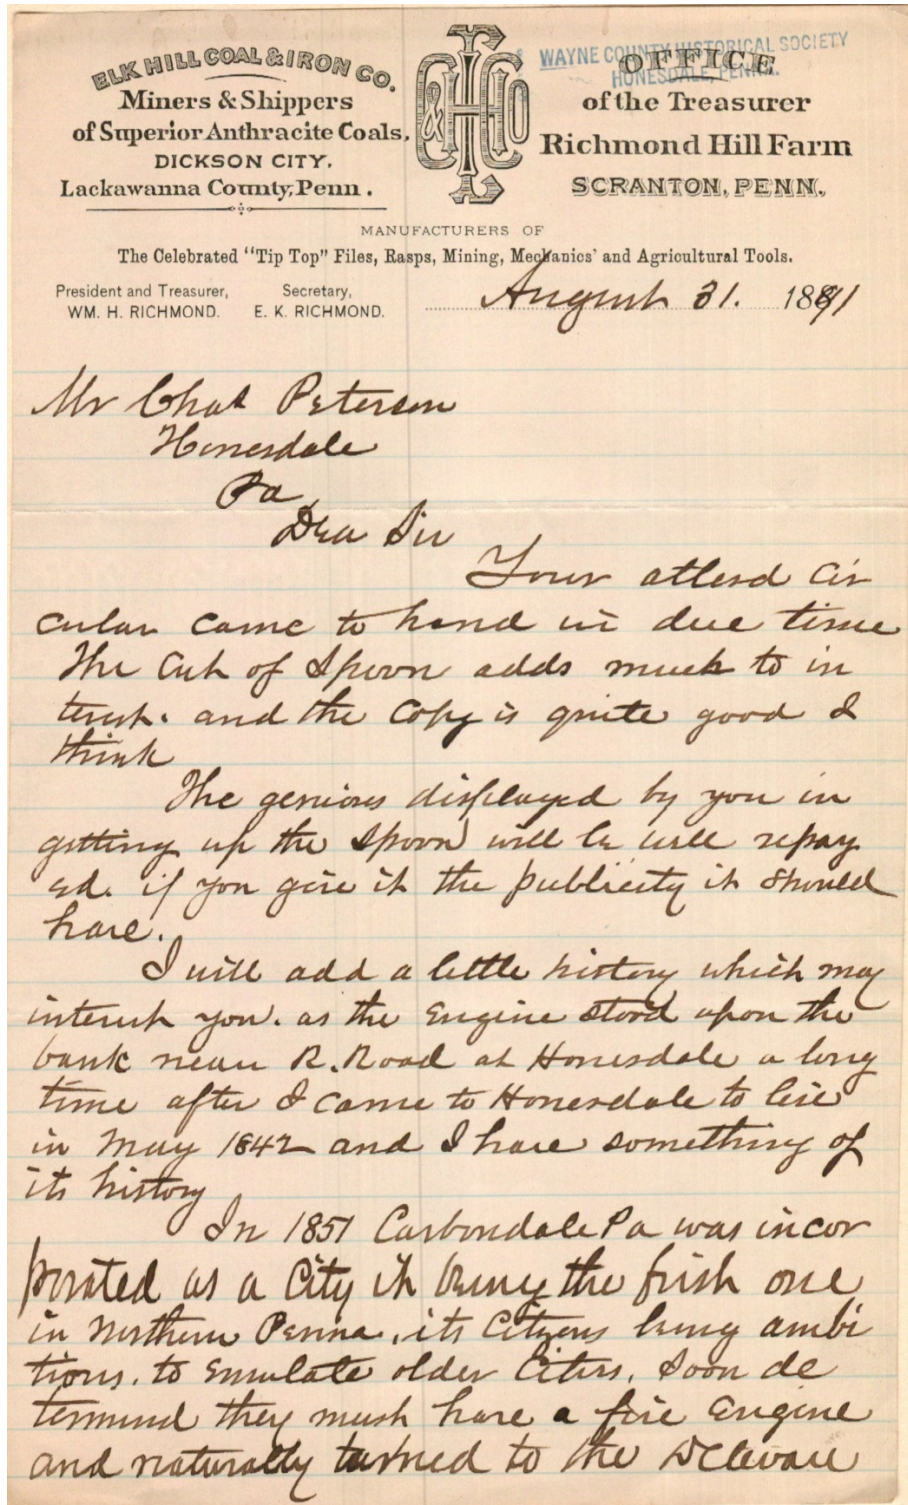 ELK HILL COAL & IRON CO.
Miners & Shippers
of Superior Anthracite Coals,
DICKSON CITY,
Lackawanna County, Penn.
WAYNE COUNTY HISTORICAL SOCIETY
HONESDALE, PENNA.
OFFICE
of the Treasurer
Richmond Hill Farm
SCRANTON, PENN.
MANUFACTURERS OF
The Celebrated "Tip Top" Files, Rasps, Mining, Mechanics' and Agricultural Tools.
President and Treasurer,
WM. H. RICHMOND.
Secretary,
E. K. RICHMOND.
August 31. 1891
Mr Chas Peterson
Honesdale
Pa
Dear Sir
Your cir
cular came to hand in due time
The Cut of Spoon adds much to in
terest. and the Copy is quite good I
think
The genious displayed by you in
getting up the Spoon will be well repay
ed. if you give it the publicity it should
have.
I will add a little history which may
interest you. as the Engine stood upon the
bank near R. Road at Honesdale a long
time after I came to Honesdale to live
in May 1842 and I have something of
its history
In 1851 Carbondale Pa was incor
porated as a City it being the first one
in Northern Penna, its Citizens being ambi
tious. to emulate older Cities, Soon de
termined they must have a fire Engine
and naturally turned to the Delaware